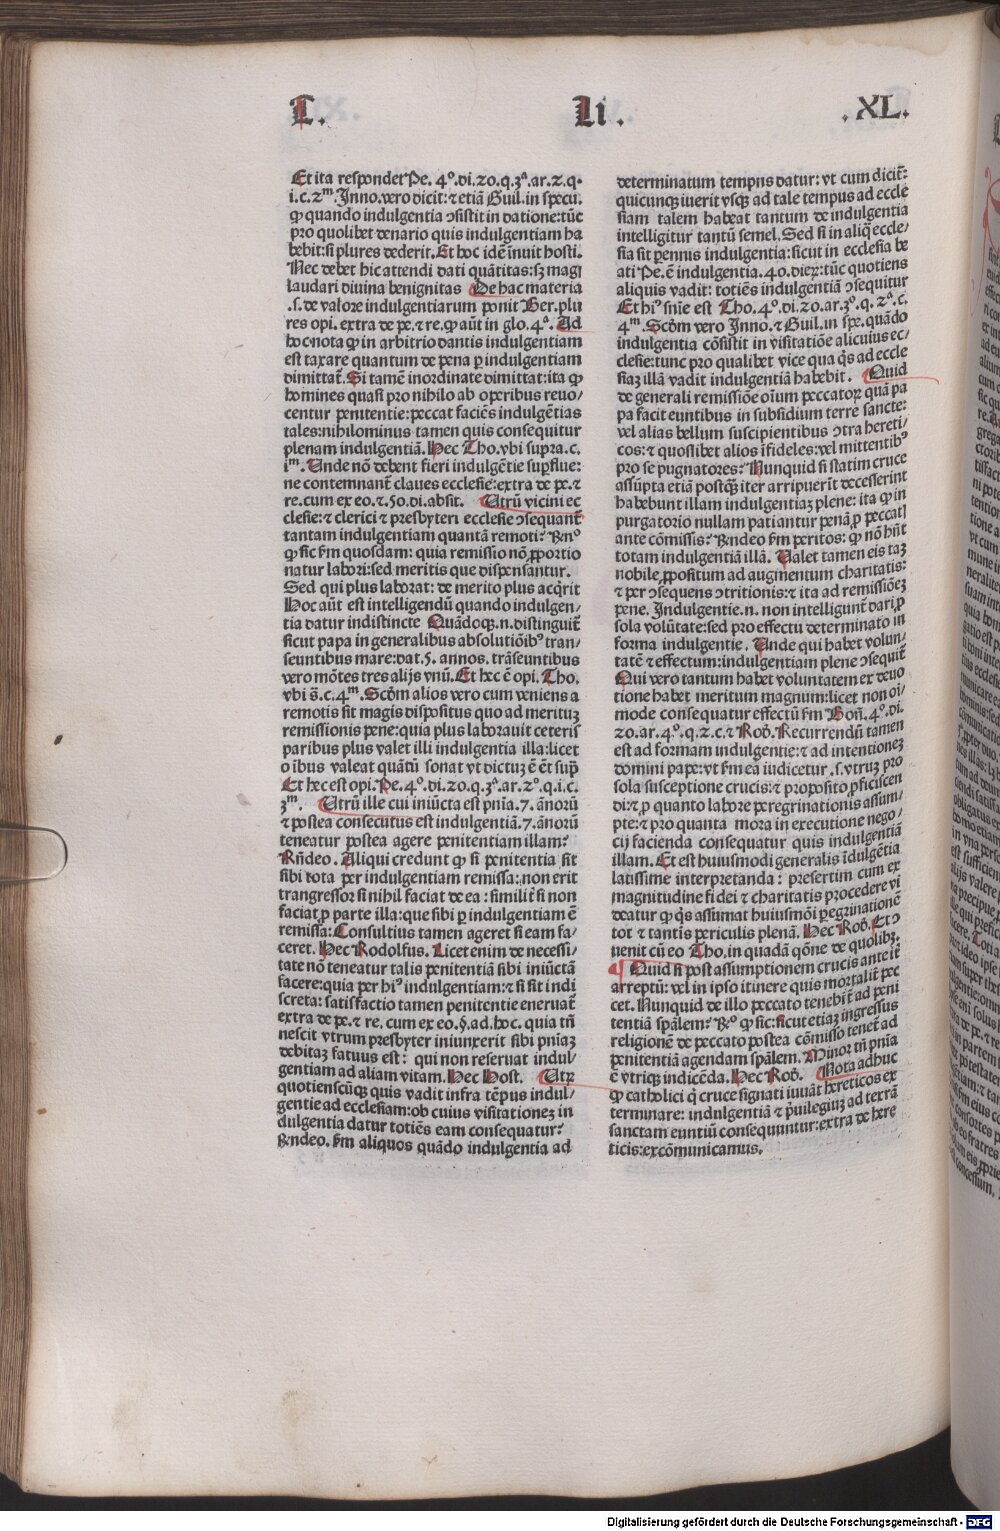 L.
Li.
.XL.
Et ita respondet Pe. 4º.di.20.q.3ª.ar.2.q.
i.c.2m. Inno.vero dicit:⁊ etiã Guil.in specu.
ꝙ quando indulgentia ↄsistit in datione:tũc
pro quolibet denario quis indulgentiam ha
bebit:si plures dederit.Et hoc idẽ inuit hosti.
Nec debet hic attendi dati quãtitas:sꝫ magl
laudari diuina benignitas De hac materia
.s.de valore indulgentiarum ponit Ber.plu
res opi. extra de pe.⁊ re.ꝙ aũt in glo.4ª. Ad
hoc nota ꝙ in arbitrio dantis indulgentiam
est taxare quantum de pena ꝑ indulgentiam
dimittat̃.Si tamẽ inordinate dimittat:ita ꝙ
homines quasi pro nihilo ab operibus reuo/
centur penitentie:peccat faciẽs indulgẽtias
tales:nihilominus tamen quis consequitur
plenam indulgentiã.Hec Tho.vbi supra.c.
im. Unde nõ debent fieri indulgẽtie supflue:
ne contemnant̃ claues ecclesie:extra de pe.⁊
re.cum ex eo.⁊.50.di.absit. Utrũ vicini ec
clesie:⁊ clerici ⁊ presbyteri ecclesie ↄsequant̃
tantam indulgentiam quantã remoti? Rñº
ꝙ sic ẜm quosdam: quia remissio nõ ꝓportio
natur labori:sed meritis que dispensantur.
Sed qui plus laborat: de merito plus acq̃rit
Hoc aũt est intelligendũ quando indulgen/
tia datur indistincte Quãdoqꝫ.n.distinguit̃
sicut papa in generalibus absolutiõibꝰ tran/
seuntibus mare:dat.5. annos. trãseuntibus
vero mõtes tres alijs vnũ.Et hec ẽ opi.Tho.
vbi s̃.c.4m.Scðm alios vero cum veniens a
remotis sit magis dispositus quo ad merituꝫ
remissionis pene:quia plus laborauit ceteris
paribus plus valet illi indulgentia illa:licet
oĩbus valeat quãtũ sonat vt dictuꝫ ẽ ẽt sup̃
Et hec est opi.Pe.4º.di.20.q.3ª.ar.2º.q.i.c.
3m. Utrũ ille cui iniũcta est pnĩa.7.ãnorũ
⁊ postea consecutus est indulgentiã.7.ãnorũ
teneatur postea agere penitentiam illam?
Rñdeo.Aliqui credunt ꝙ si penitentia sit
sibi tota per indulgentiam remissa:non erit
trangressor si nihil faciat de ea:similĩ si non
faciat ꝓ parte illa:que sibi ꝑ indulgentiam ẽ
remissa:Consultius tamen ageret si eam fa/
ceret.Hec Rodolfus.Licet enim de necessi/
tate nõ teneatur talis penitentiã sibi iniũctã
facere:quia per hiꝰ indulgentiam:⁊ si sit indi
screta: satisfactio tamen penitentie eneruat̃
extra de pe.⁊ re.cum ex eo.§.ad.hoc.quia tñ
nescit vtrum presbyter iniunxerit sibi pniaꝫ
debitaꝫ fatuus est: qui non reseruat indul/
gentiam ad aliam vitam.Hec Host. Utꝝ
quotienscũqꝫ quis vadit infra tẽpus indul/
gentie ad ecclesiam:ob cuius visitationeꝫ in
dulgentia datur totiẽs eam consequatur?
Rñdeo.ẜm aliquos quãdo indulgentia ad
determinatum tempus datur:vt cum dicit̃:
quicunqꝫ iuerit vsqꝫ ad tale tempus ad eccle
siam talem habeat tantum de indulgentia
intelligitur tantũ semel.Sed si in aliq̃ eccle/
sia sit ꝑennis indulgentia:sicut in ecclesia be
ati Pe.ẽ indulgentia.40.dieꝝ:tũc quotiens
aliquis vadit: totiẽs indulgentiã ↄsequitur
Et hiꝰ sñie est Tho.4º.di.20.ar.3º.q.2ª.c.
4m.Scðm vero Inno.⁊ Guil.in spe.quãdo
indulgentia cõsistit in visitatiõe alicuius ec/
clesie:tunc pro qualibet vice qua q̃s ad eccle
siaꝫ illã vadit indulgentiã habebit. Quid
de generali remissiõe oĩum peccatoꝝ quã pa
pa facit euntibus in subsidium terre sancte:
vel alias bellum suscipientibus ↄtra hereti/
cos:⁊ quoslibet alios ĩfideles:vel mittentibꝰ
pro se pugnatores?Nunquid si statim cruce
assũpta etiã postqꝫ iter arripuerĩt decesserint
habebunt illam indulgentiaꝫ plene: ita ꝙ in
purgatorio nullam patiantur penã ꝓ peccatl
ante cõmissis?Rñdeo ẜm peritos: ꝙ nõ hñt
totam indulgentiã illã. Ualet tamen eis taꝫ
nobile ꝓpositum ad augmentum charitatis:
⁊ per ↄsequens ↄtritionis:⁊ ita ad remissiõeꝫ
pene.Indulgentie.n. non intelligunt̃ dari ꝓ
sola volũtate:sed pro effectu determinato in
forma indulgentie. Unde qui habet volun/
tatẽ ⁊ effectum:indulgentiam plene ↄsequit̃
Qui vero tantum habet voluntatem ex deuo
tione habet meritum magnum:licet non oĩ/
mode consequatur effectũ ẜm Boñ.4º.di.
20.ar.4º.q.2.c.⁊ Rob.Recurrendũ tamen
est ad formam indulgentie:⁊ ad intentioneꝫ
domini pape:vt ẜm ea iudicetur .s.vtruꝫ pro
sola susceptione crucis:⁊ proposito ꝓficiscen
di:⁊ ꝓ quanto labore peregrinationis assum/
pte:⁊ pro quanta mora in executione nego/
cij facienda consequatur quis indulgentiã
illam.Et est huiusmodi generalis ĩdulgẽtia
latissime interpretanda: presertim cum ex
magnitudine fidei ⁊ charitatis procedere vi
deatur ꝙ q̃s assumat huiusmõi ꝑegrinationẽ
tot ⁊ tantis periculis plenã.Hec Rob.Et ↄ
uenit cũ eo Tho.in quadã qõne de quolibꝫ.
Quid si post assumptionem crucis ante it̃
arreptũ:vel in ipso itinere quis mortalit̃ pec
cet.Nunquid de illo peccato tenebit̃ ad peni
tentiã sp̃alem?Rº ꝙ sic:sicut etiaꝫ ingressus
religionẽ de peccato postea cõmisso tenet̃ ad
penitentiã agendam sp̃alem.Minor tñ pnia
ẽ vtriqꝫ indicẽda.Hec Rob. Nota adhuc
ꝙ catholici q̃ cruce signati iuuãt hereticos ex
terminare: indulgentiã ⁊ p̃uilegiuꝫ ad terrã
sanctam euntiũ consequuntur:extra de here
ticis:excõmunicamus.
Digitalisierung gefördert durch die Deutsche Forschungsgemeinschaft - DFG